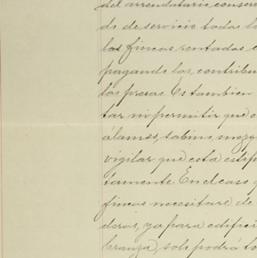 del arrendatario conser
do de servicio todas l
las fincas rentadas e
pagando las contribu
las presas. Es tambien
tar no permitir que
alamos, sabino, mezq
vigilar que esta estip
tamente. En el caso
fincas necesitare de
deras, ya para edifici
branza, solo podrá to